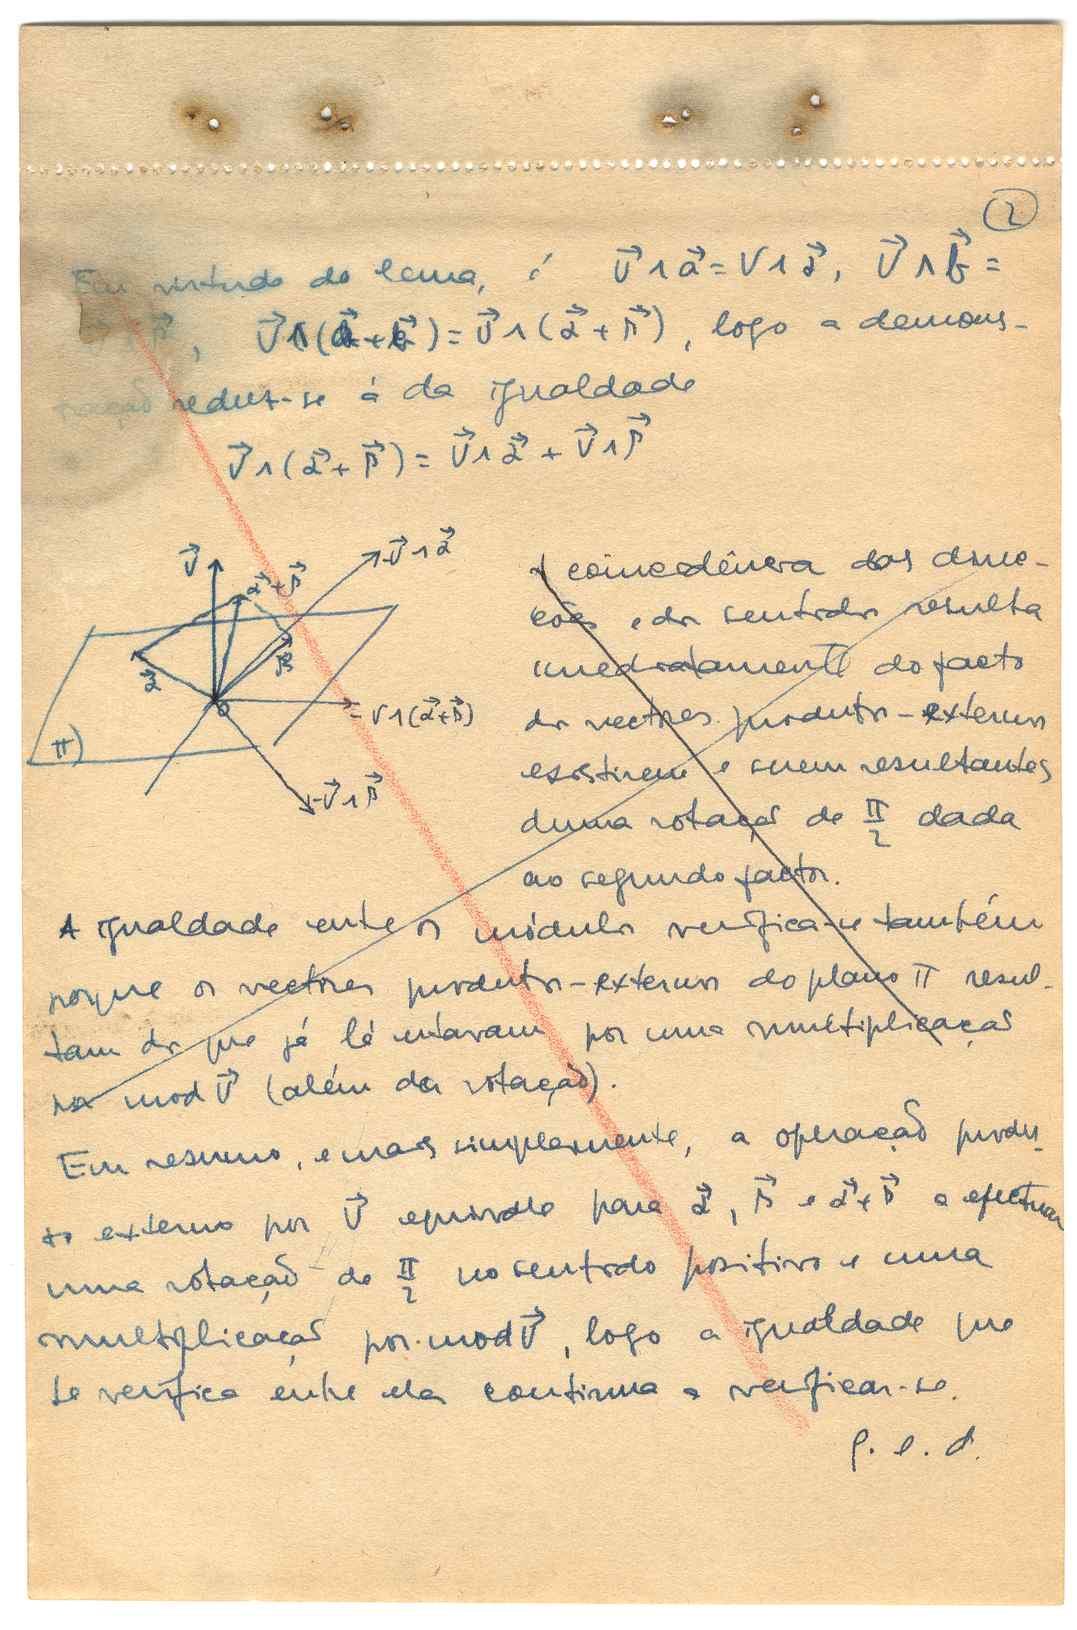 2
Em virtude do lema, é V⃗ ∧ a⃗ = V ∧ α⃗, V⃗ ∧ b⃗ =
β⃗, V⃗ ∧ (a⃗ + b⃗) = V⃗ ∧ (α⃗ + β⃗), logo a demons-
tração reduz-se á da igualdade
V⃗ ∧ (α⃗ + β⃗) = V⃗ ∧ α⃗ + V⃗ ∧ β⃗
V⃗
α⃗ + β⃗
V⃗ ∧ α⃗
α⃗
β⃗
O
V ∧ (α⃗ + β⃗)
π)
V⃗ ∧ β⃗
A coincidência das direc-
ções e do sentido resulta
imediatamente do facto
dos vectores produtos-externos
existirem e serem resultantes
duma rotação de π/2 dada
ao segundo factor.
A igualdade entre os módulos verifica-se também
porque os vectores produtos-externos do plano π resul-
tam dos que já lá estavam por uma multiplicação
por mod V⃗ (além da rotação).
Em resumo, e mais simplesmente, a operação produ-
to externo por V⃗ equivale para α⃗, β⃗ e α⃗ + β⃗ a efectuar
uma rotação de π/2 no sentido positivo e uma
multiplicação por mod V⃗, logo a igualdade que
se verifica entre eles continua a verificar-se.
q. e. d.